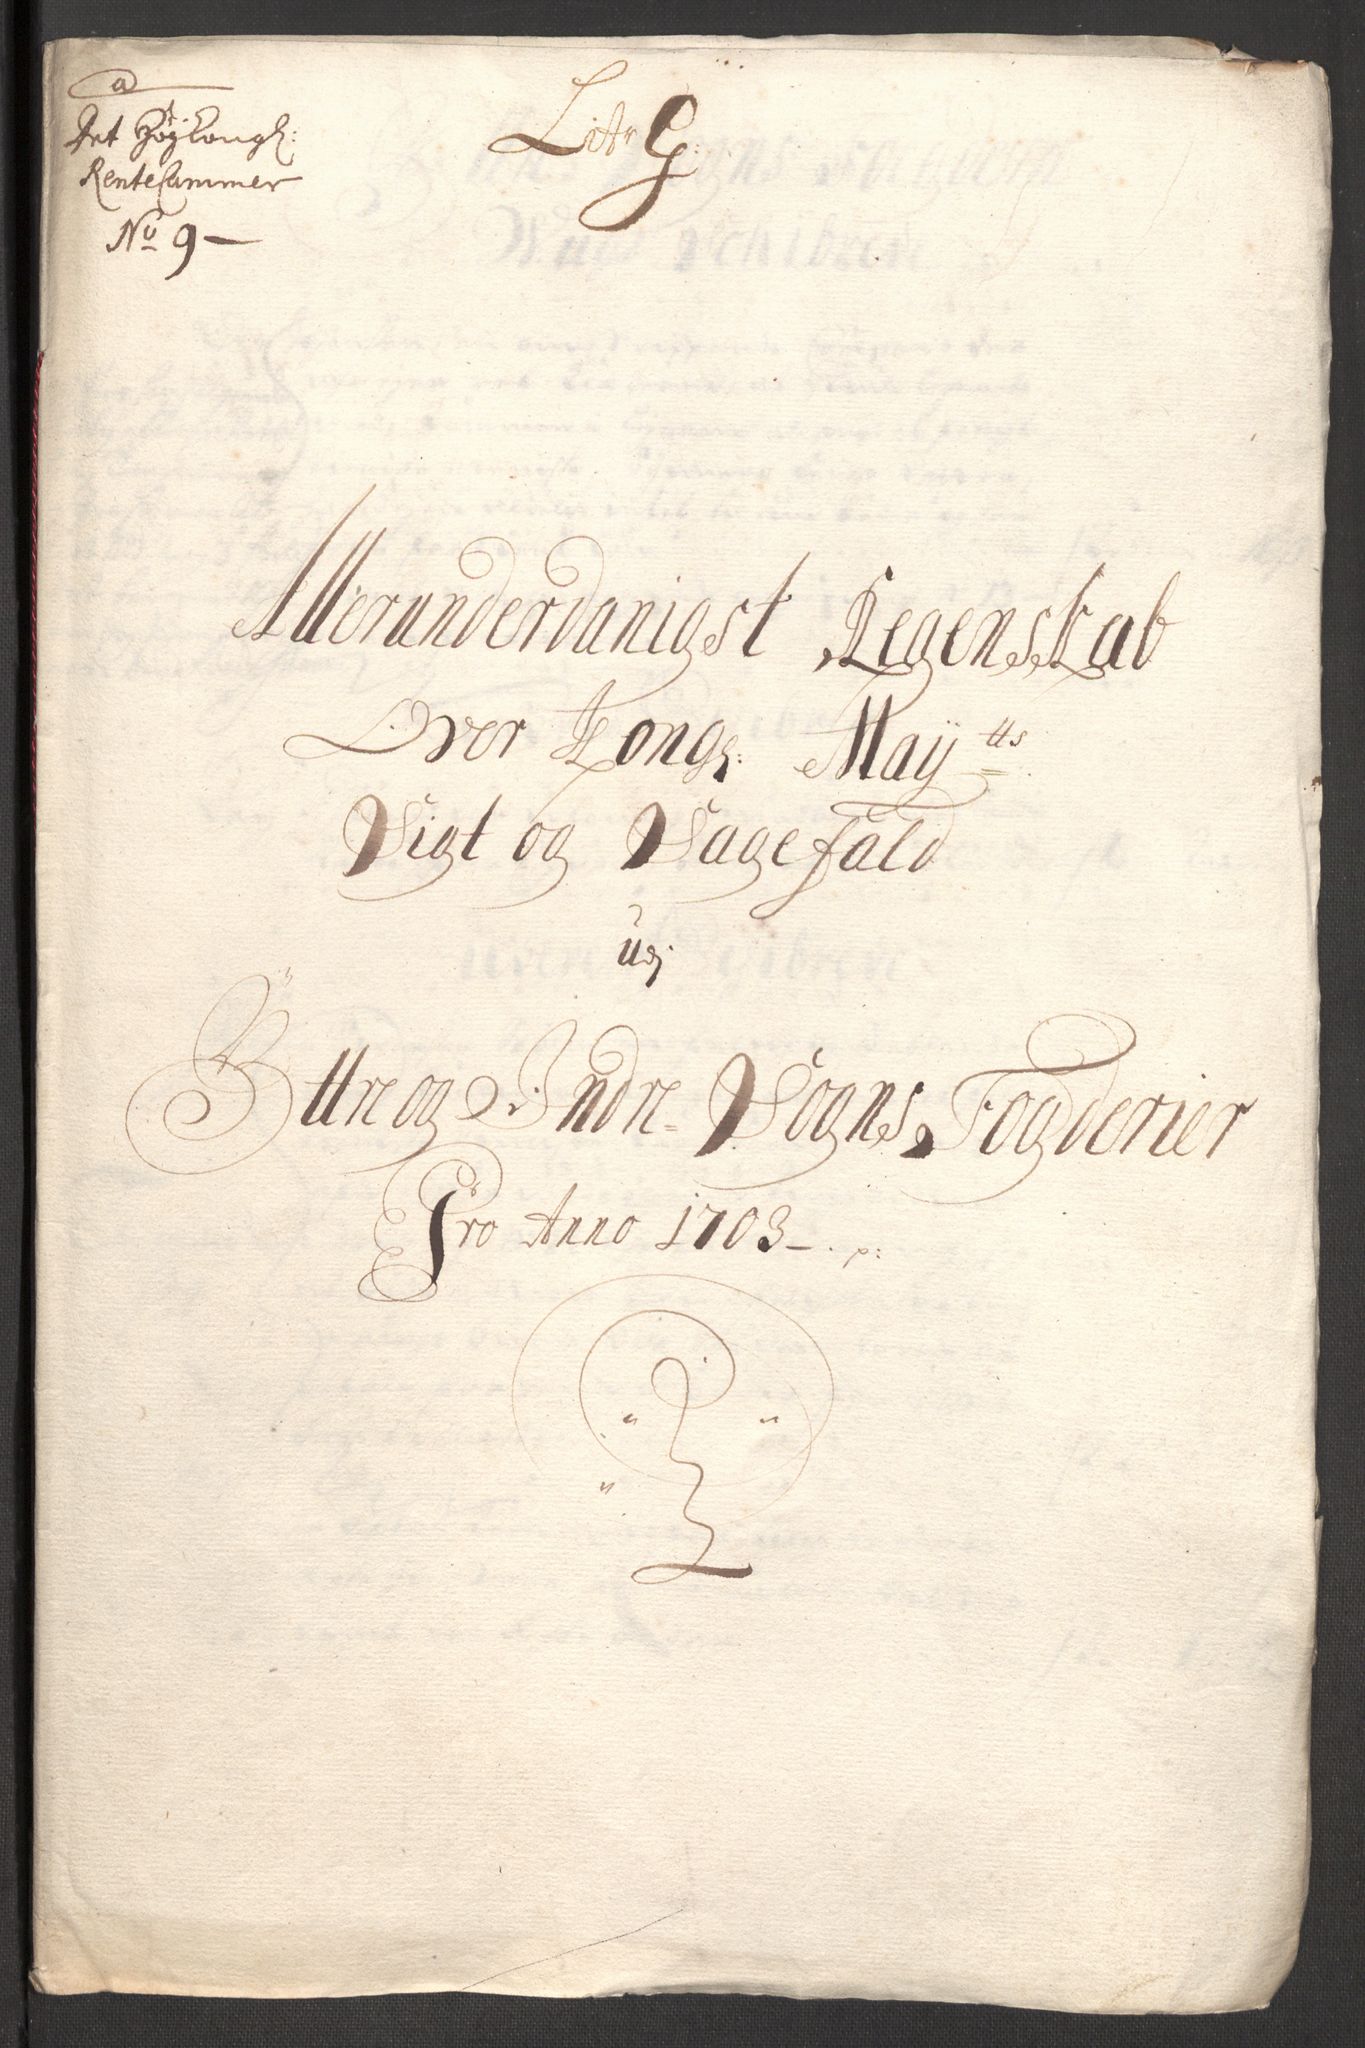 a
Det Höy Kongl:
Rente Cammer
No 9 —
Litr G:
Allerunderdanigst Regenskab
Over Kongl: Mayˢ ᵗᵗˢ
Sigt og Sagefald
udj
Yttre og Indre Sogns Fogderier
Pro Anno 1703 –. p: